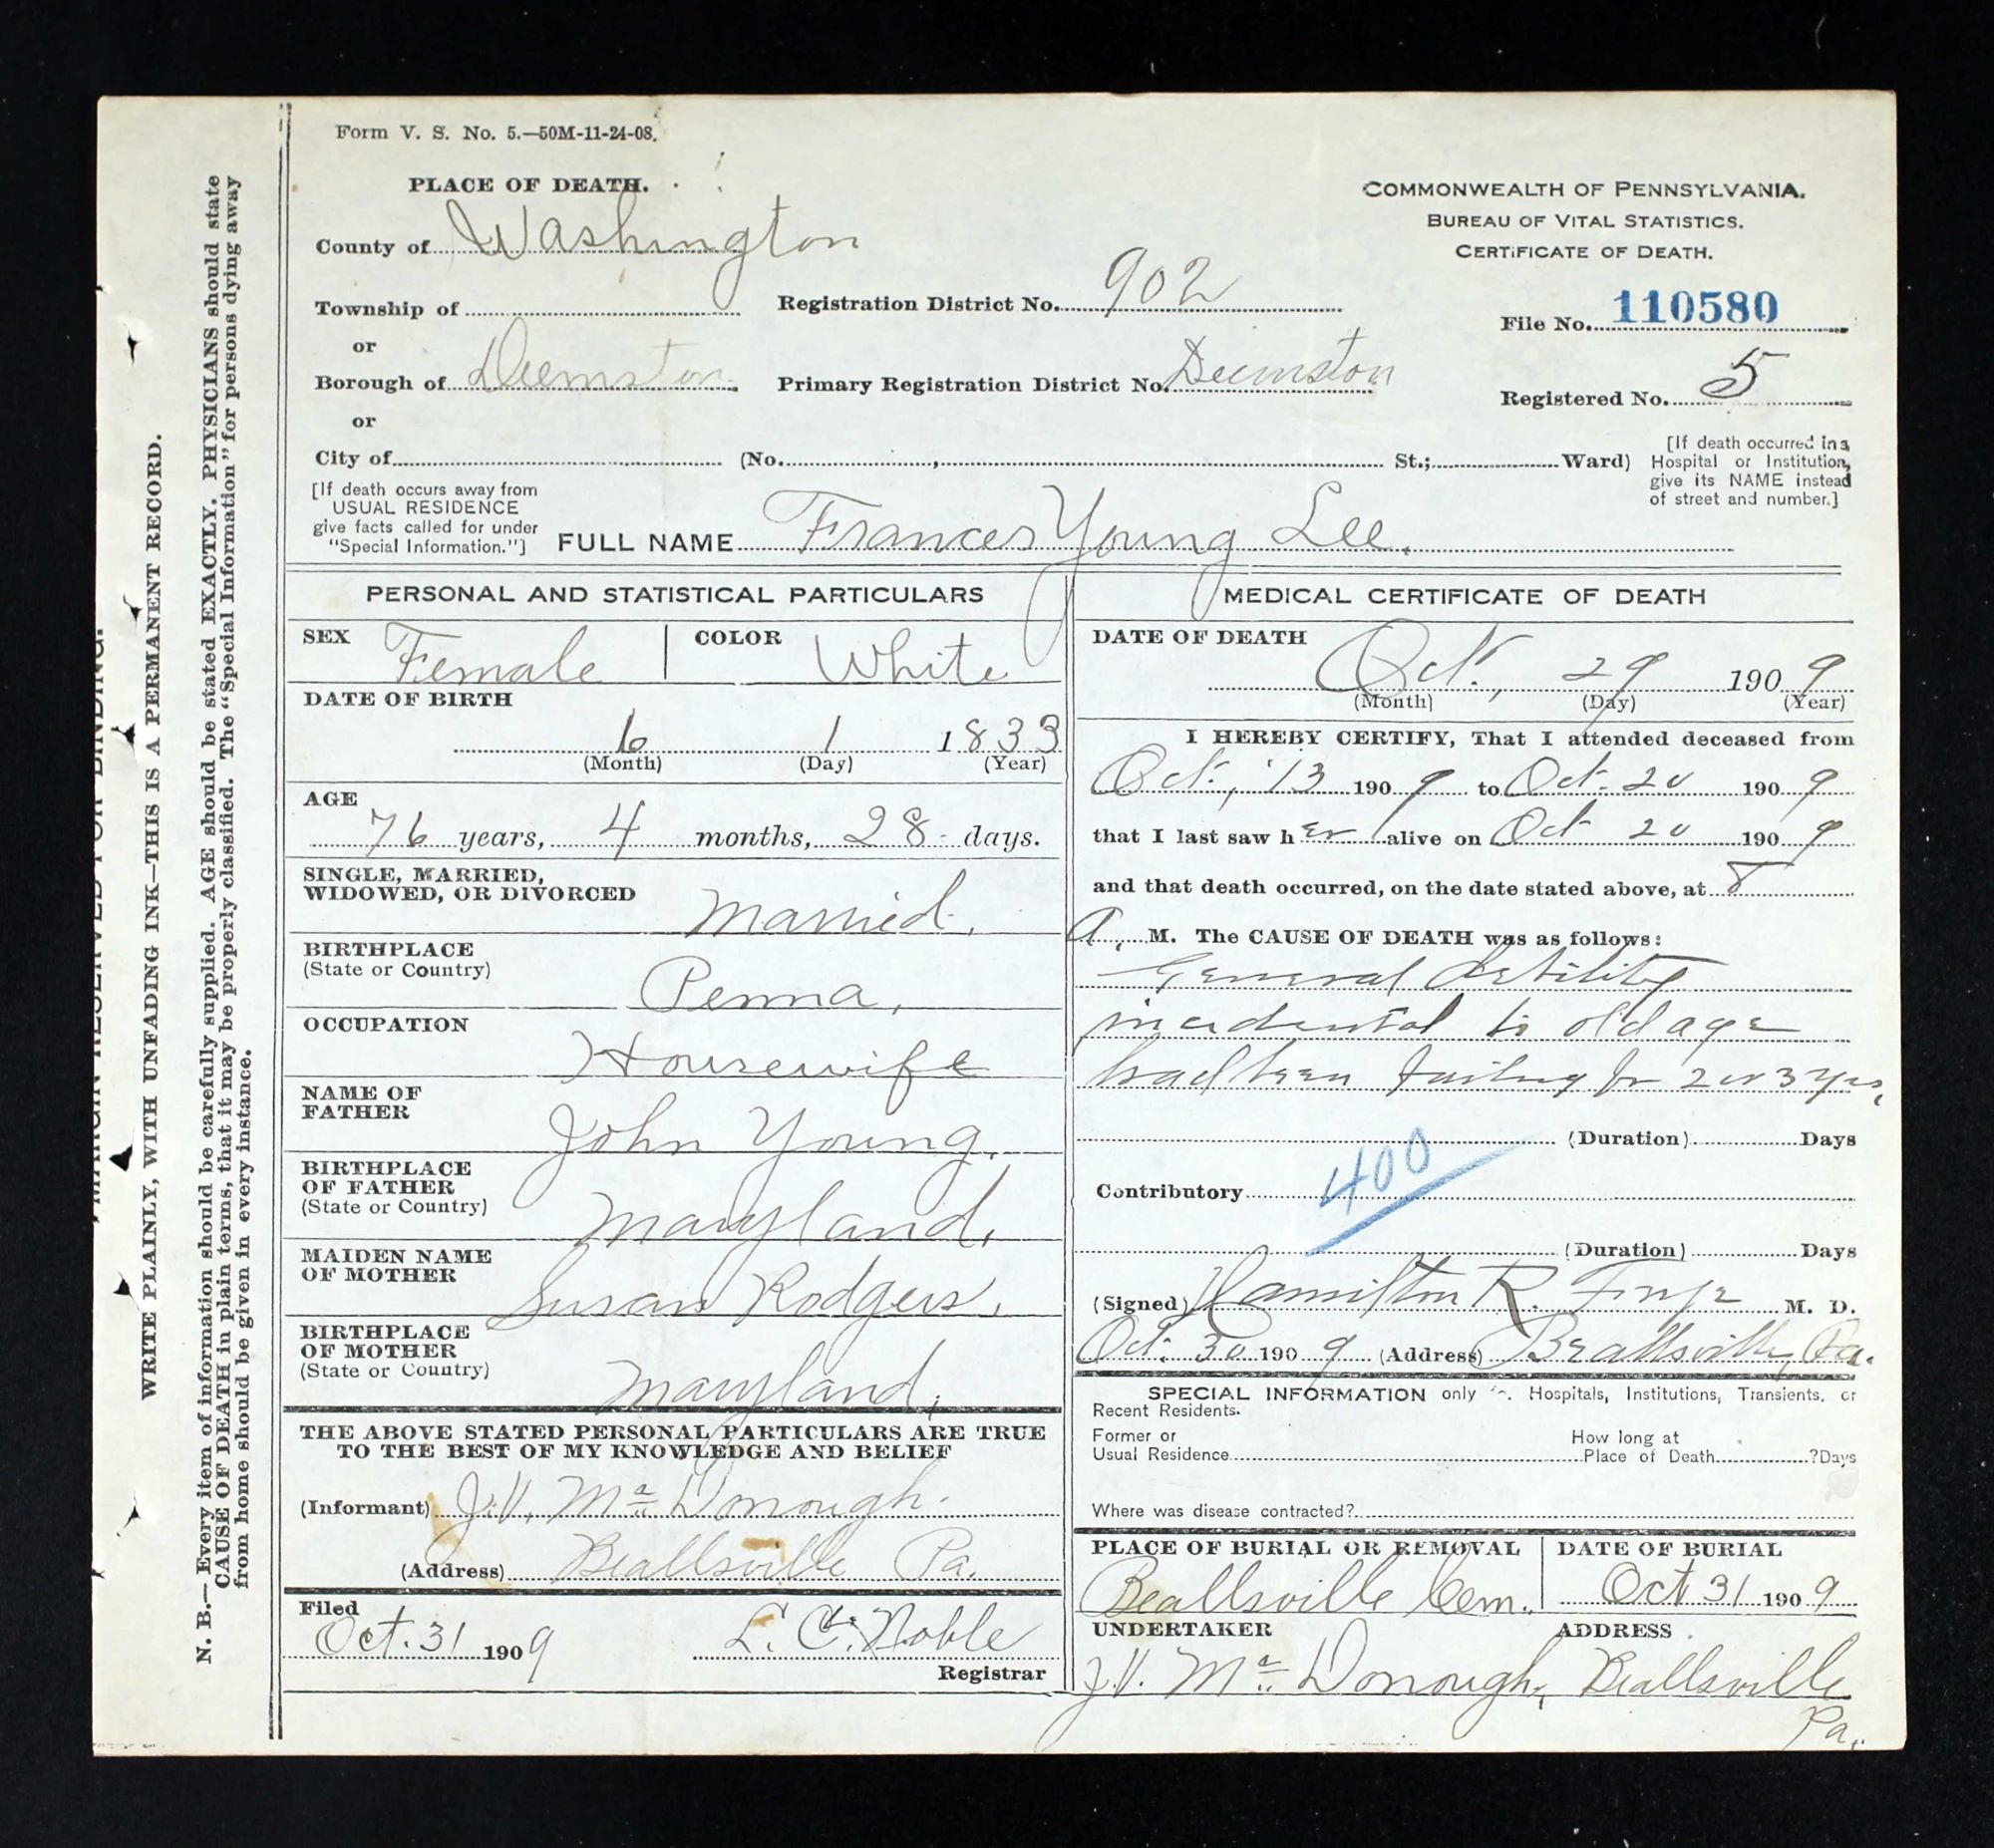 Form V. S. No. 5.—50M-11-24-08.
PLACE OF DEATH.
County of Washington
Township of
or
Borough of Deemston
or
City of (No. , St.; Ward)
Registration District No. 902
Primary Registration District No. Deemston
COMMONWEALTH OF PENNSYLVANIA.
BUREAU OF VITAL STATISTICS.
CERTIFICATE OF DEATH.
File No. 110580
Registered No. 5
[If death occurred in a
Hospital or Institution,
give its NAME instead
of street and number.]
[If death occurs away from
USUAL RESIDENCE
give facts called for under
"Special Information."]
FULL NAME Frances Young Lee.
PERSONAL AND STATISTICAL PARTICULARS
SEX Female
COLOR White
DATE OF BIRTH
6 1 1833
(Month) (Day) (Year)
AGE
76 years, 4 months, 28 days.
SINGLE, MARRIED,
WIDOWED, OR DIVORCED
Married.
BIRTHPLACE
(State or Country)
Penna,
OCCUPATION
Housewife
NAME OF
FATHER
John Young.
BIRTHPLACE
OF FATHER
(State or Country)
Maryland,
MAIDEN NAME
OF MOTHER
Susan Rodgers,
BIRTHPLACE
OF MOTHER
(State or Country)
Maryland,
THE ABOVE STATED PERSONAL PARTICULARS ARE TRUE
TO THE BEST OF MY KNOWLEDGE AND BELIEF
(Informant) J.V. Mc Donough.
(Address) Beallsville Pa.
Filed
Oct. 31 1909 L. C. Noble
Registrar
MEDICAL CERTIFICATE OF DEATH
DATE OF DEATH
Oct., 29 1909
(Month) (Day) (Year)
I HEREBY CERTIFY, That I attended deceased from
Oct., 13 1909 to Oct. 20 1909
that I last saw her alive on Oct 20 1909
and that death occurred, on the date stated above, at 8
A. M. The CAUSE OF DEATH was as follows:
General debility
incidental to old age
had been failing for 2 or 3 yrs,
(Duration) Days
400
Contributory
(Duration) Days
(Signed) Hamilton R. M. D.
Oct. 30 1909 (Address) Beallsville, Pa.
SPECIAL INFORMATION only Hospitals, Institutions, Transients, or
Recent Residents.
Former or
Usual Residence
How long at
Place of Death ?Days
Where was disease contracted?
PLACE OF BURIAL OR REMOVAL
Beallsville Cem.
DATE OF BURIAL
Oct 31 1909
UNDERTAKER
J.V. Mc Donough,
ADDRESS
Beallsville
Pa.
WRITE PLAINLY, WITH UNFADING INK—THIS IS A PERMANENT RECORD.
N. B.—Every item of information should be carefully supplied. AGE should be stated EXACTLY. PHYSICIANS should state
CAUSE OF DEATH in plain terms, that it may be properly classified. The "Special Information" for persons dying away
from home should be given in every instance.